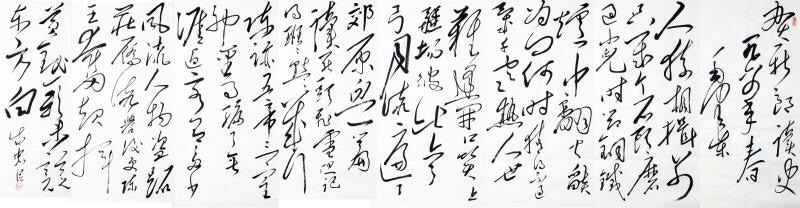 贺新郎读史
一九六四年春
毛泽东
人猿相揖别
只几个石头磨
过小儿时节铜铁
炉中翻火焰
为问何时猜得不过
几千寒热人世
难逢开口笑上
疆场彼此弯
弓月流遍了
郊原血一篇
读罢头飞雪但记
得斑斑点点几行
陈迹五帝三皇
神圣事骗了无
涯过客有多少
风流人物盗跖
庄蹻流誉后更陈
王奋起挥
黄钺歌未竟
东方白